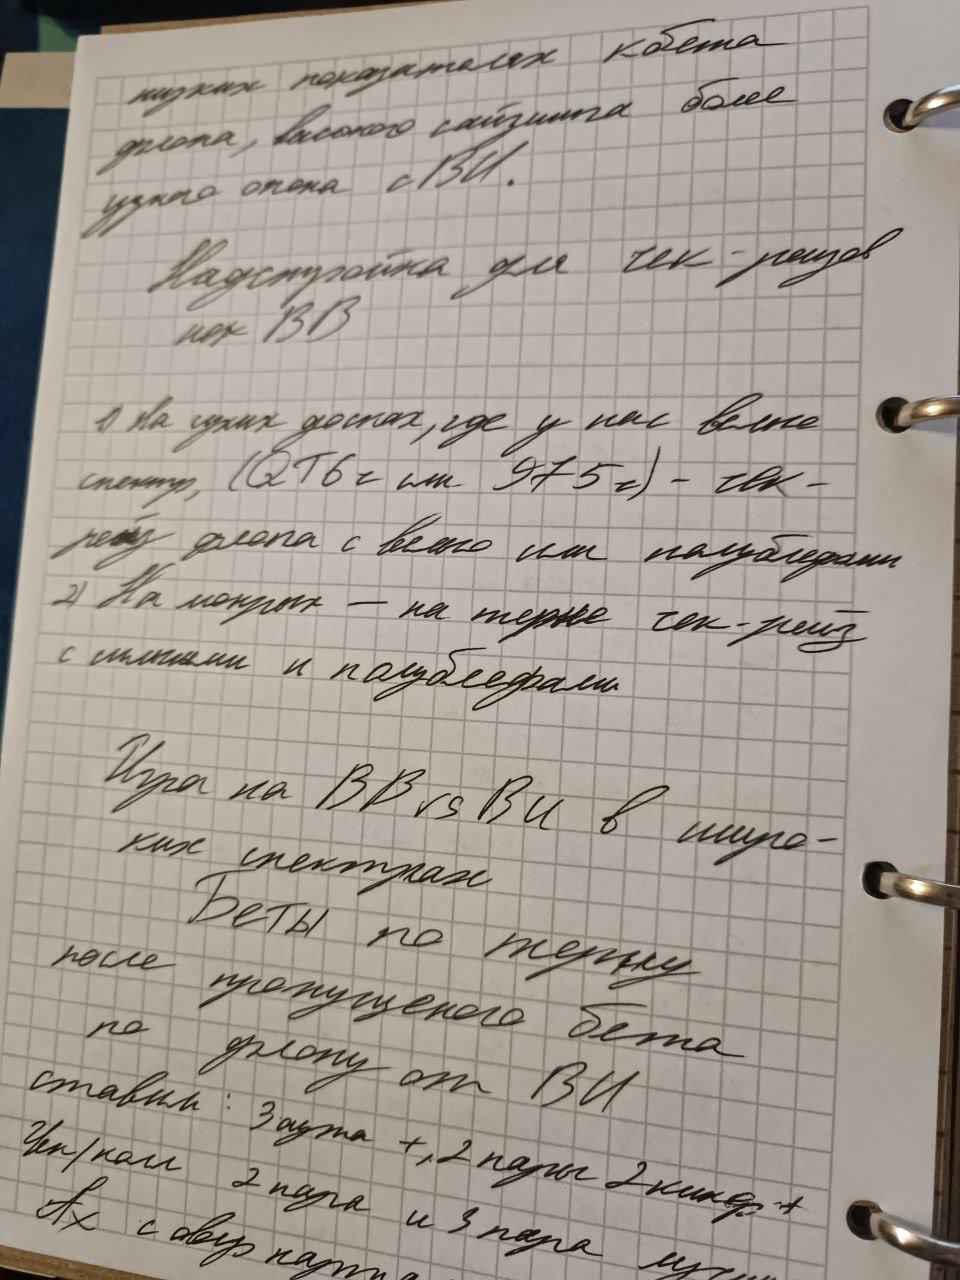 низких показателях кбета
флопа, высокого сайзинга более
узкого опена с ВИ.
Надстройка для чек-рейзов
нек ВВ
1) На сухих досках, где у нас велью
спектр, (QT6r или 975r) - чек-
рейз флопа с велью или полублефами
2) На мокрых — на терне чек-рейз
с сильными и полублефами
Игра на ВВ vs ВИ в широ-
ких спектрах
Беты по терну
после пропущеного бета
по флопу от ВИ
ставим: 3 аута +, 2 пары 2 кикер +
Чек/колл 2 пара и 3 пара
Ах с овер